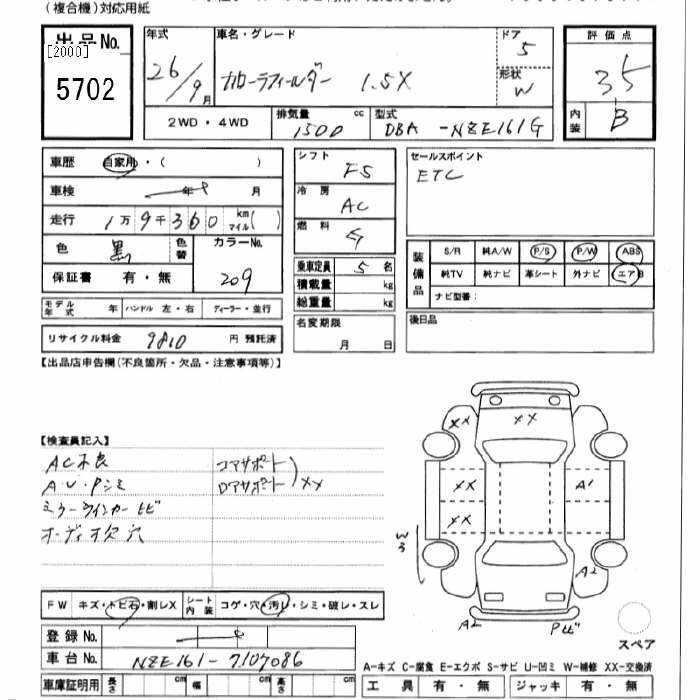 (複合機)対応用紙
出品No.
[2000]
5702
年式
26/9月
車名・グレード
カローラフィールダー 1.5X
ドア
5
形状
W
2WD・4WD
排気量 cc
1500
型式
DBA-NZE161G
評価点
3.5
内装
B
車歴 自家用・( )
車検 年 月
走行 1万9千360 km マイル( )
色 黒 色替
カラーNo.
209
保証書 有・無
モデル年式 年 ハンドル 左・右 ディーラー・並行
リサイクル料金 9810 円 預託済
シフト
F5
冷房
AC
燃料
G
乗車定員 5 名
積載量 kg
総重量 kg
名変期限
月 日
セールスポイント
ETC
装備品
S/R 純A/W P/S P/W ABS
純TV 純ナビ 革シート 外ナビ エアB
ナビ型番:
後日品
【出品店申告欄(不良箇所・欠品・注意事項等)】
【検査員記入】
AC不良
コアサポート
A・U・Pシミ
ロアサポート
XX
ミラーウインカーヒビ
オーディオ欠 穴
XX
XX
XX
XX
A1
W3
A2
A2
Pヒビ
スペア
FW キズ・トビ石・割レX
シート内装 コゲ・穴・汚レ・シミ・破レ・スレ
登録No.
車台No. NZE161-7107086
車庫証明用 長さ cm 幅 cm 高さ cm
A-キズ C-腐食 E-エクボ S-サビ U-凹ミ W-補修 XX-交換済
工具 有・無 ジャッキ 有・無